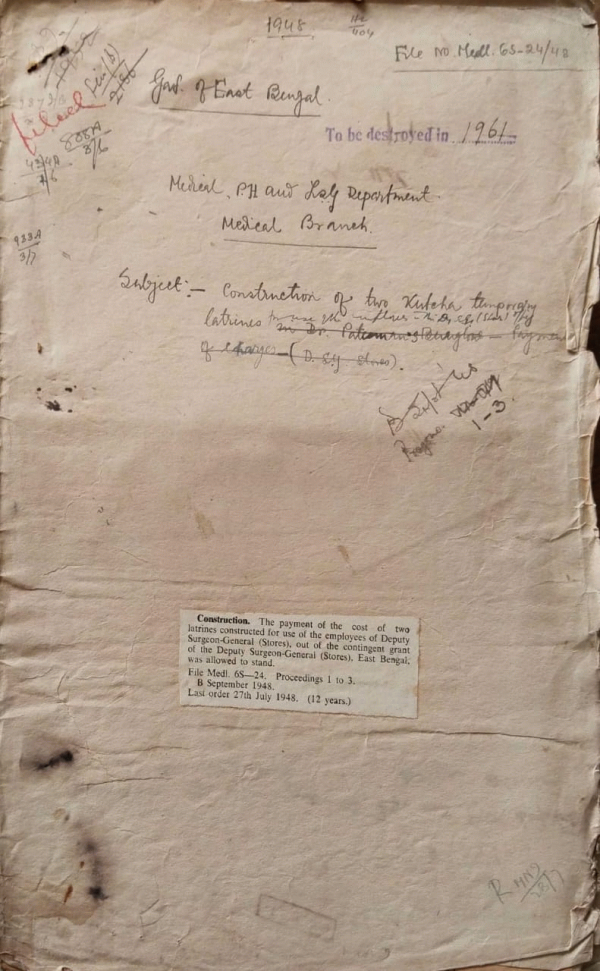 1948
File No. Medl. 6S-24/48
Govt. of East Bengal.
filed
To be destroyed in 1961
Medical, PH and LSG Department.
Medical Branch.
Subject:- Construction of two Kutcha temporary
latrines
of charges - (D. S.G Stores).
B Sept '48
1-3.
933A
3/7
Construction. The payment of the cost of two
latrines constructed for use of the employees of Deputy
Surgeon-General (Stores), out of the contingent grant
of the Deputy Surgeon-General (Stores), East Bengal,
was allowed to stand.
File Medl. 6S—24. Proceedings 1 to 3.
B September 1948.
Last order 27th July 1948. (12 years.)